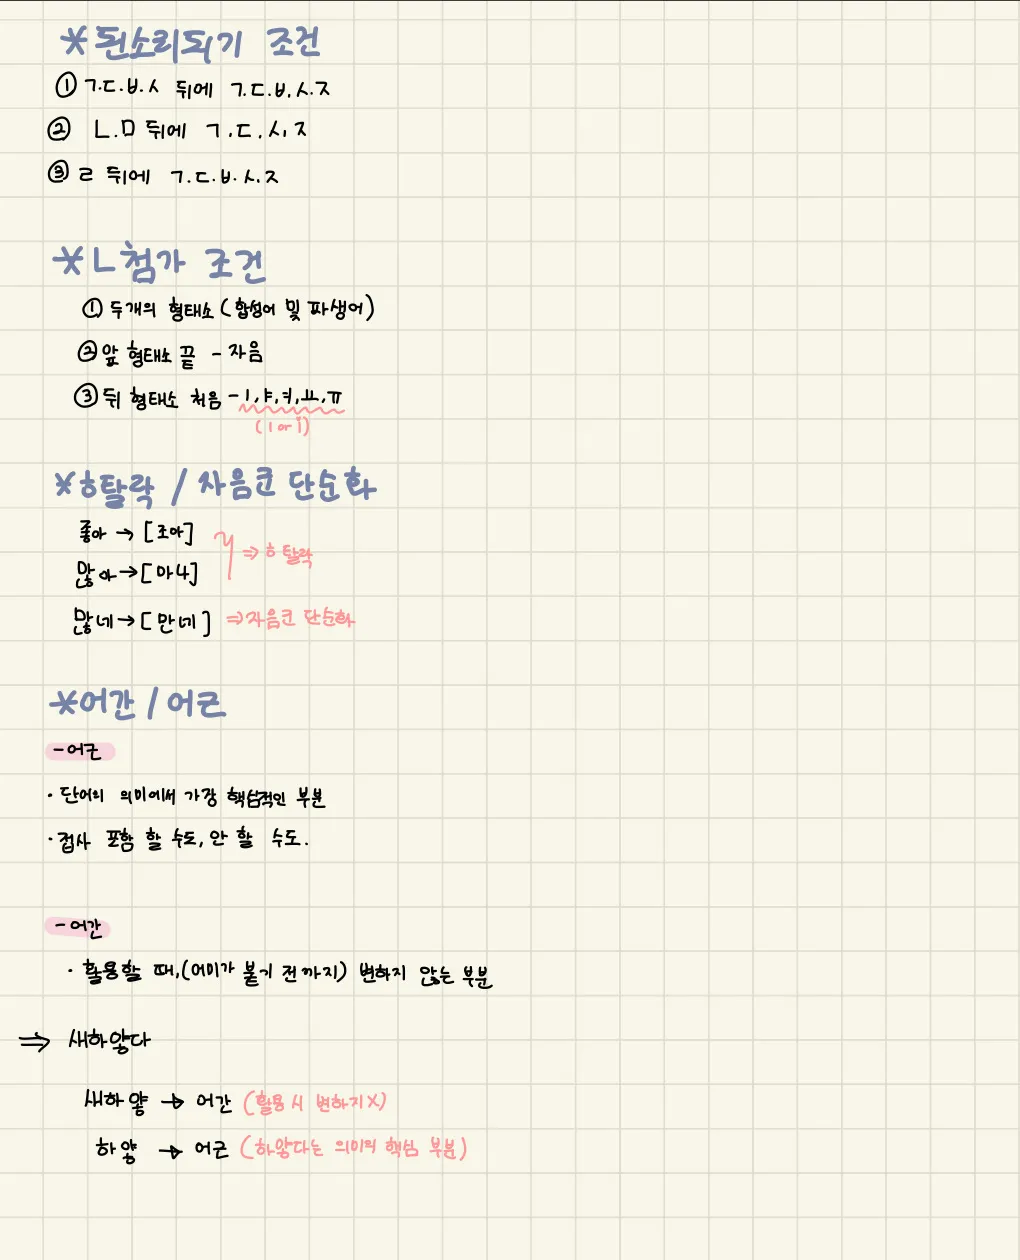 *된소리되기 조건
① ㄱ.ㄷ.ㅂ.ㅅ 뒤에 ㄱ.ㄷ.ㅂ.ㅅ.ㅈ
② ㄴ.ㅁ 뒤에 ㄱ.ㄷ.ㅅ,ㅈ
③ ㄹ 뒤에 ㄱ.ㄷ.ㅂ.ㅅ.ㅈ
*ㄴ첨가 조건
① 두개의 형태소 (합성어 및 파생어)
② 앞 형태소 끝 - 자음
③ 뒤 형태소 처음 - ㅣ,ㅑ,ㅕ,ㅛ,ㅠ
(ㅣ or j)
*ㅎ탈락 / 자음군 단순화
좋아 → [조아]
많아 → [마나] ⇒ ㅎ 탈락
많네 → [만네] ⇒ 자음군 단순화
*어간 / 어근
- 어근
· 단어의 의미에서 가장 핵심적인 부분
· 접사 포함 할 수도, 안 할 수도.
- 어간
· 활용할 때, (어미가 붙기 전까지) 변하지 않는 부분
⇒ 새하얗다
새하얗 → 어간 (활용 시 변하지X)
하얗 → 어근 (하얗다는 의미의 핵심 부분)